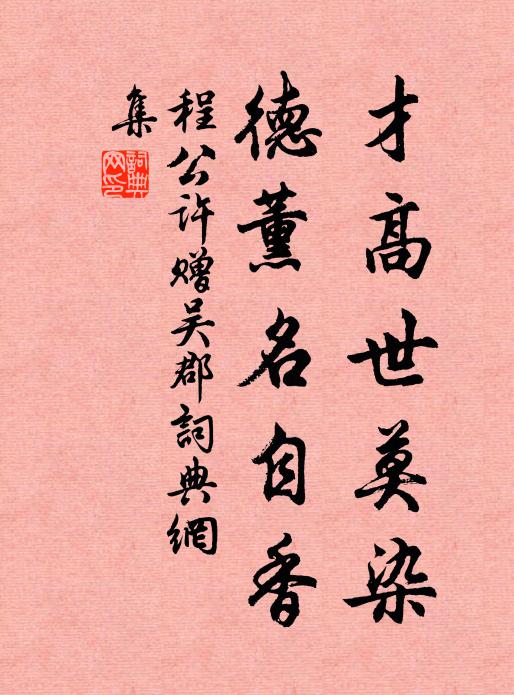 才高世莫染
德薰名自香
程公许赠吴郡詞典網
集
詞典
网印